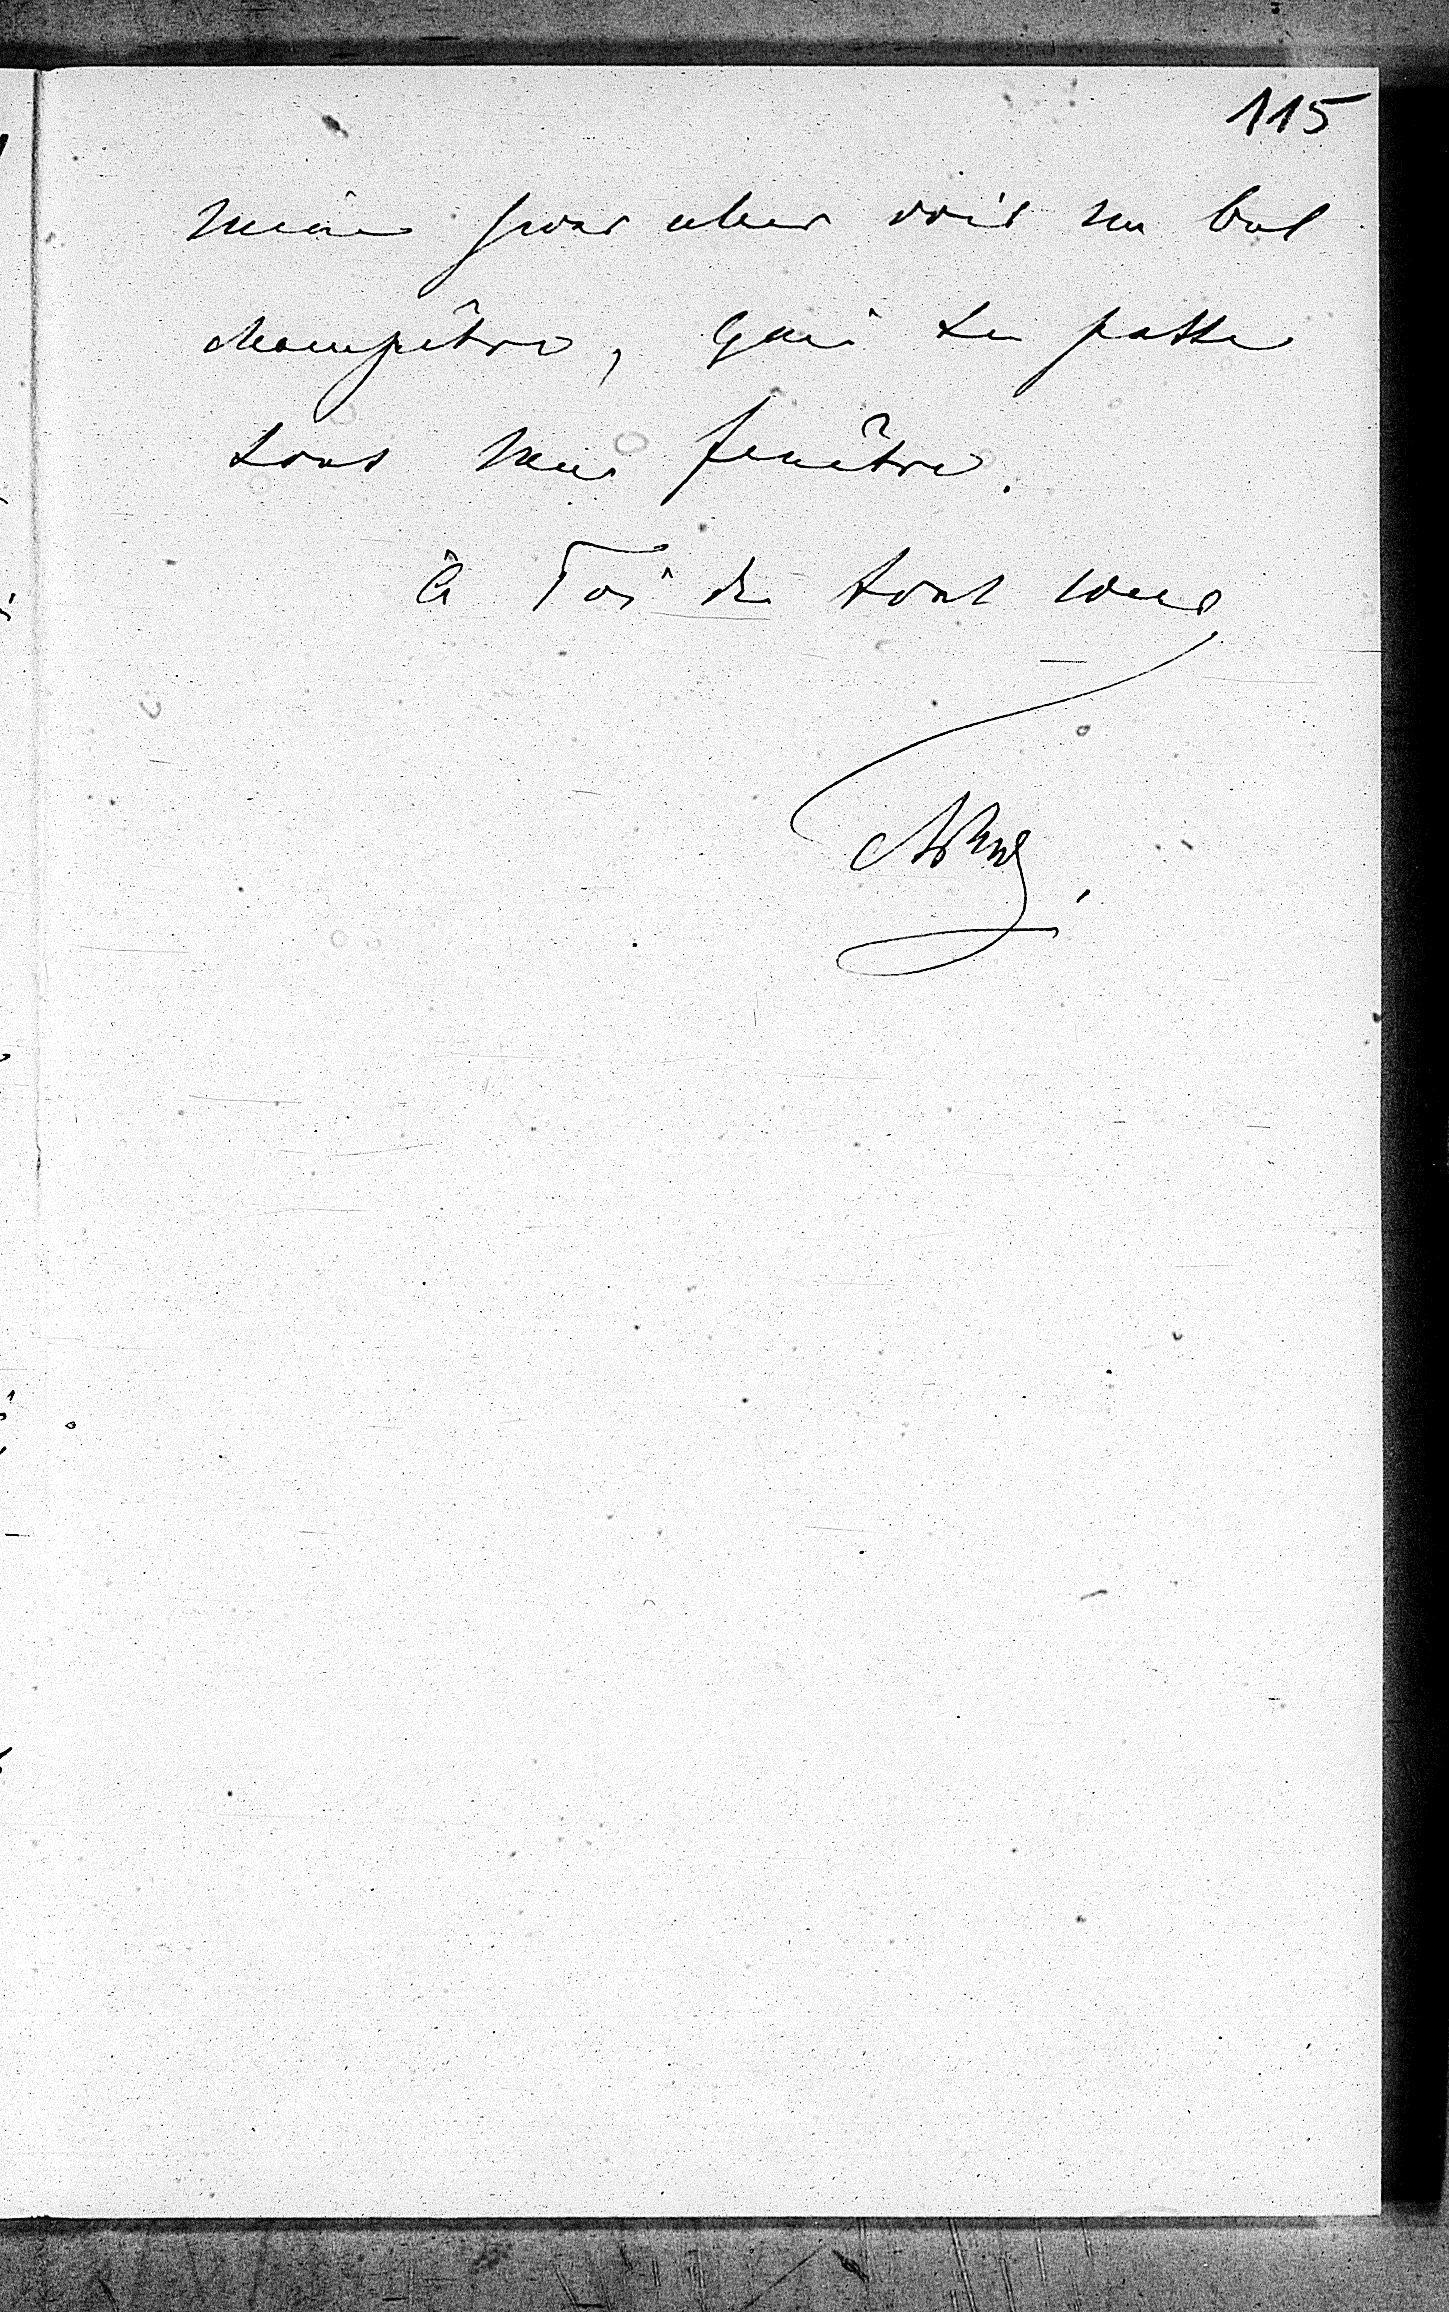 115
même pour aller voir un bal
champêtre, qui se passe
sous mes fenêtres.
à Toi de tout cœur